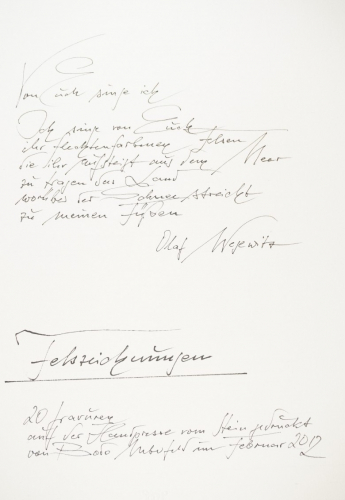 Von Euch singe ich
Ich singe von Euch
ihr flechtenfarbenen Felsen
die ihr aufsteigt aus dem Meer
zu tragen das Land
worüber der Schnee streicht
zu meinen Füßen
Olaf Wegewitz
Felszeichnungen
20 Gravuren
auf der Handpresse vom Stein gedruckt
von Bodo im Februar 2012